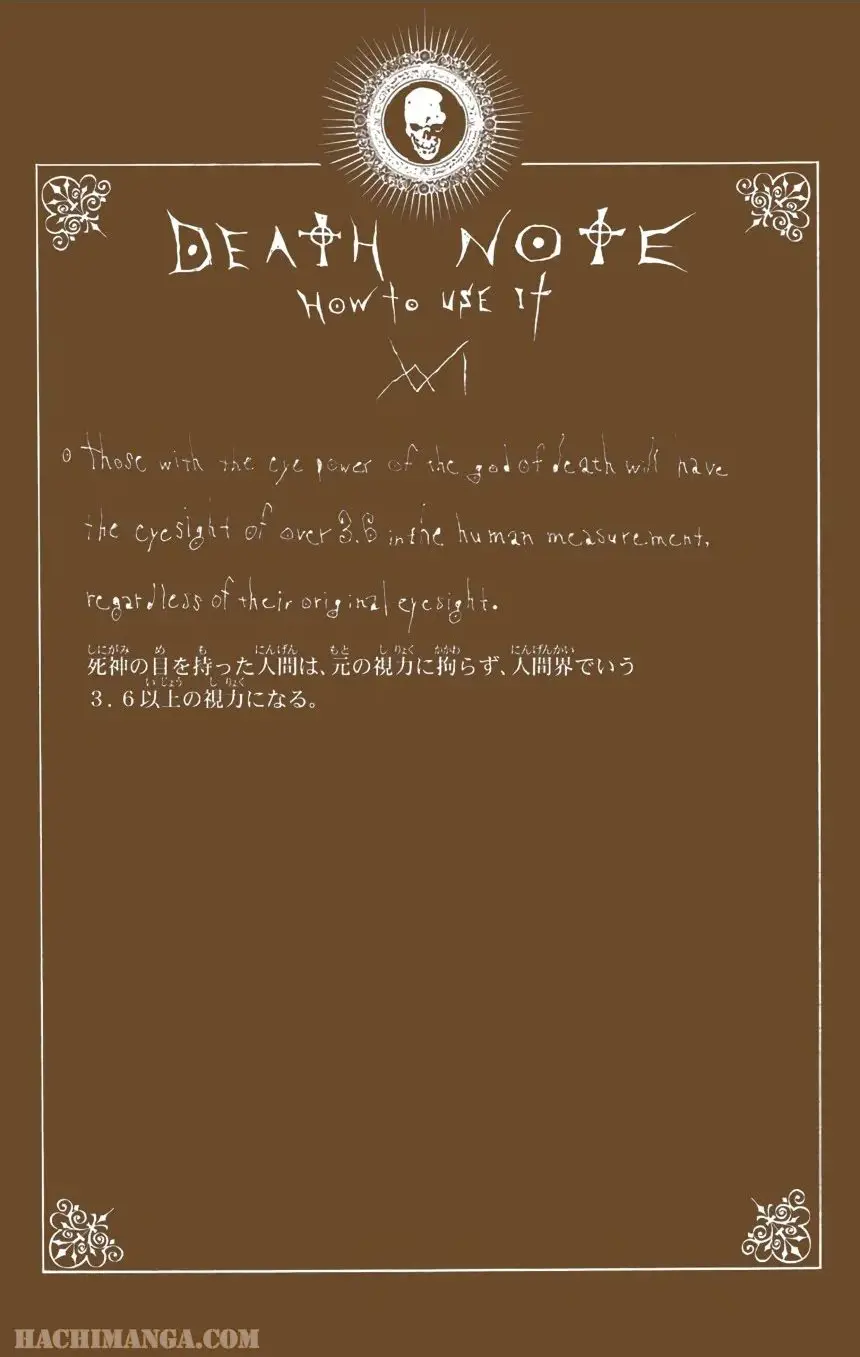 DEATH NOTE
HOW to USE It
XXI
○ Those with the eye power of the god of death will have
the eyesight of over 3.6 in the human measurement,
regardless of their original eyesight.
しにがみ め も にんげん もと し りょく かかわ にんげんかい
死神の目を持った人間は、元の視力に拘らず、人間界でいう
い じょう し りょく
3.6以上の視力になる。
HACHIMANGA.COM